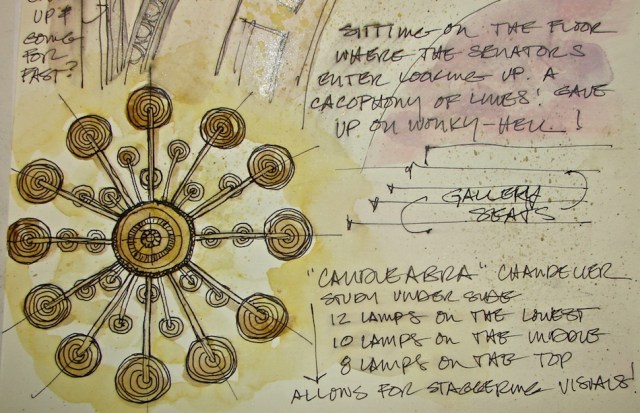 UP &
GOING
FOR
PAST?
SITTING ON THE FLOOR
WHERE THE SENATORS
ENTER LOOKING UP. A
CACOPHONY OF LINES! GAVE
UP ON WONKY-HELL...!
GALLERY
SEATS
"CANDLEABRA" CHANDELIER
STUDY UNDER SIDE
12 LAMPS ON THE LOWEST
10 LAMPS ON THE MIDDLE
8 LAMPS ON THE TOP
ALLOWS FOR STAGGERING VISUALS!